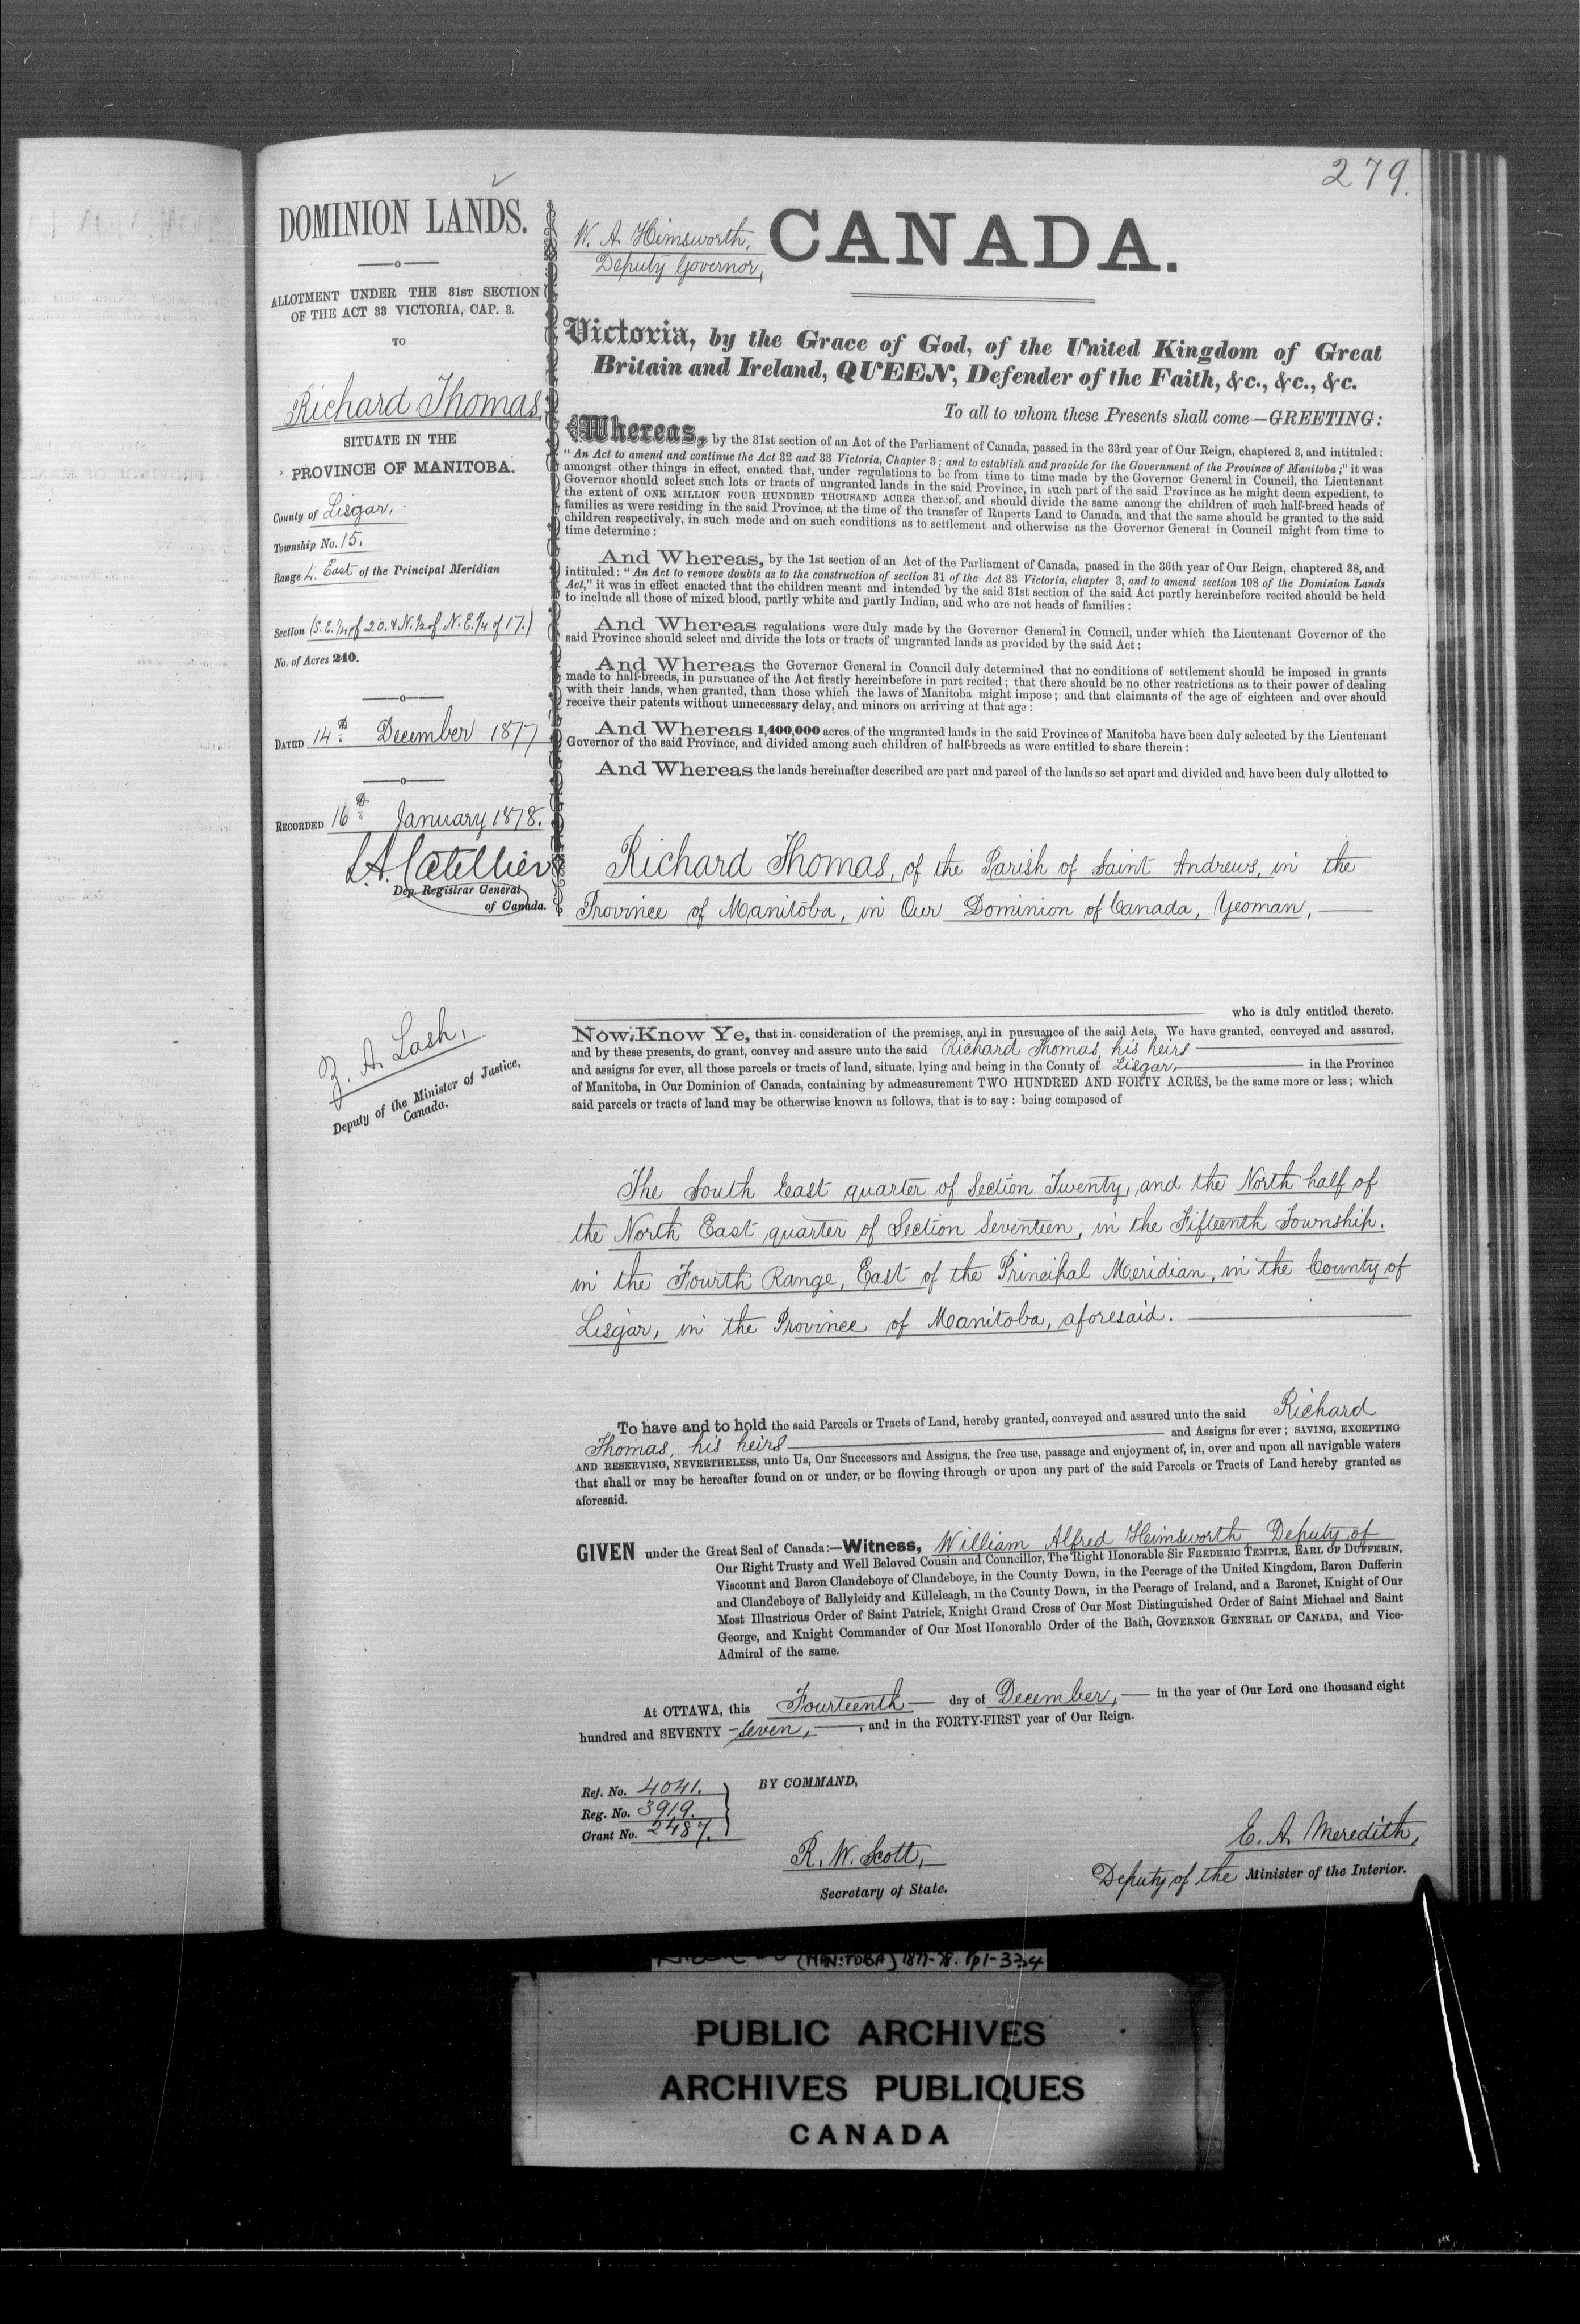 279.
DOMINION LANDS.
ALLOTMENT UNDER THE 31ST SECTION
OF THE ACT 33 VICTORIA, CAP. 3.
TO
Richard Thomas
SITUATE IN THE
PROVINCE OF MANITOBA.
County of Lisgar,
Township No. 15.
Range 4. East of the Principal Meridian
Section (S.E.1/4 of 20. & N.1/2 of N.E.1/4 of 17.)
No. of Acres 240.
DATED 14th December 1877
RECORDED 16th January 1878.
L.A. Catellier
Dep. Registrar General
of Canada.
Z. A. Lash,
Deputy of the Minister of Justice,
Canada.
W. A. Himsworth,
Deputy Governor,
CANADA.
Victoria, by the Grace of God, of the United Kingdom of Great
Britain and Ireland, QUEEN, Defender of the Faith, &c., &c., &c.
To all to whom these Presents shall come—GREETING:
Whereas, by the 31st section of an Act of the Parliament of Canada, passed in the 33rd year of Our Reign, chaptered 3, and intituled:
"An Act to amend and continue the Act 32 and 33 Victoria, Chapter 3; and to establish and provide for the Government of the Province of Manitoba;" it was
amongst other things in effect, enated that, under regulations to be from time to time made by the Governor General in Council, the Lieutenant
Governor should select such lots or tracts of ungranted lands in the said Province, in such part of the said Province as he might deem expedient, to
the extent of ONE MILLION FOUR HUNDRED THOUSAND ACRES thereof, and should divide the same among the children of such half-breed heads of
families as were residing in the said Province, at the time of the transfer of Ruperts Land to Canada, and that the same should be granted to the said
children respectively, in such mode and on such conditions as to settlement and otherwise as the Governor General in Council might from time to
time determine:
And Whereas, by the 1st section of an Act of the Parliament of Canada, passed in the 36th year of Our Reign, chaptered 38, and
intituled: "An Act to remove doubts as to the construction of section 31 of the Act 33 Victoria, chapter 3, and to amend section 108 of the Dominion Lands
Act," it was in effect enacted that the children meant and intended by the said 31st section of the said Act partly hereinbefore recited should be held
to include all those of mixed blood, partly white and partly Indian, and who are not heads of families:
And Whereas regulations were duly made by the Governor General in Council, under which the Lieutenant Governor of the
said Province should select and divide the lots or tracts of ungranted lands as provided by the said Act:
And Whereas the Governor General in Council duly determined that no conditions of settlement should be imposed in grants
made to half-breeds, in pursuance of the Act firstly hereinbefore in part recited; that there should be no other restrictions as to their power of dealing
with their lands, when granted, than those which the laws of Manitoba might impose; and that claimants of the age of eighteen and over should
receive their patents without unnecessary delay, and minors on arriving at that age:
And Whereas 1,400,000 acres of the ungranted lands in the said Province of Manitoba have been duly selected by the Lieutenant
Governor of the said Province, and divided among such children of half-breeds as were entitled to share therein:
And Whereas the lands hereinafter described are part and parcel of the lands so set apart and divided and have been duly allotted to
Richard Thomas, of the Parish of Saint Andrews, in the
Province of Manitoba, in Our Dominion of Canada, Yeoman,
who is duly entitled thereto.
Now Know Ye, that in consideration of the premises, and in pursuance of the said Acts, We have granted, conveyed and assured,
and by these presents, do grant, convey and assure unto the said Richard Thomas, his heirs
and assigns for ever, all those parcels or tracts of land, situate, lying and being in the County of Lisgar, in the Province
of Manitoba, in Our Dominion of Canada, containing by admeasurement TWO HUNDRED AND FORTY ACRES, be the same more or less; which
said parcels or tracts of land may be otherwise known as follows, that is to say: being composed of
The South East quarter of Section Twenty, and the North half of
the North East quarter of Section Seventeen; in the Fifteenth Township,
in the Fourth Range, East of the Principal Meridian, in the County of
Lisgar, in the Province of Manitoba, aforesaid.
To have and to hold the said Parcels or Tracts of Land, hereby granted, conveyed and assured unto the said Richard
Thomas, his heirs and Assigns for ever; SAVING, EXCEPTING
AND RESERVING, NEVERTHELESS, unto Us, Our Successors and Assigns, the free use, passage and enjoyment of, in, over and upon all navigable waters
that shall or may be hereafter found on or under, or be flowing through or upon any part of the said Parcels or Tracts of Land hereby granted as
aforesaid.
GIVEN under the Great Seal of Canada:—Witness, William Alfred Himsworth Deputy of
Our Right Trusty and Well Beloved Cousin and Councillor, The Right Honorable Sir FREDERIC TEMPLE, EARL OF DUFFERIN,
Viscount and Baron Clandeboye of Clandeboye, in the County Down, in the Peerage of the United Kingdom, Baron Dufferin
and Clandeboye of Ballyleidy and Killeleagh, in the County Down, in the Peerage of Ireland, and a Baronet, Knight of Our
Most Illustrious Order of Saint Patrick, Knight Grand Cross of Our Most Distinguished Order of Saint Michael and Saint
George, and Knight Commander of Our Most Honorable Order of the Bath, GOVERNOR GENERAL OF CANADA, and Vice-
Admiral of the same.
At OTTAWA, this Fourteenth day of December, in the year of Our Lord one thousand eight
hundred and SEVENTY-seven, and in the FORTY-FIRST year of Our Reign.
Ref. No. 4041.
Reg. No. 3919.
Grant No. 2487.
BY COMMAND,
R. W. Scott,
Secretary of State.
E. A. Meredith,
Deputy of the Minister of the Interior.
(MANITOBA) 1877-78. Pp 1-334
PUBLIC ARCHIVES
ARCHIVES PUBLIQUES
CANADA